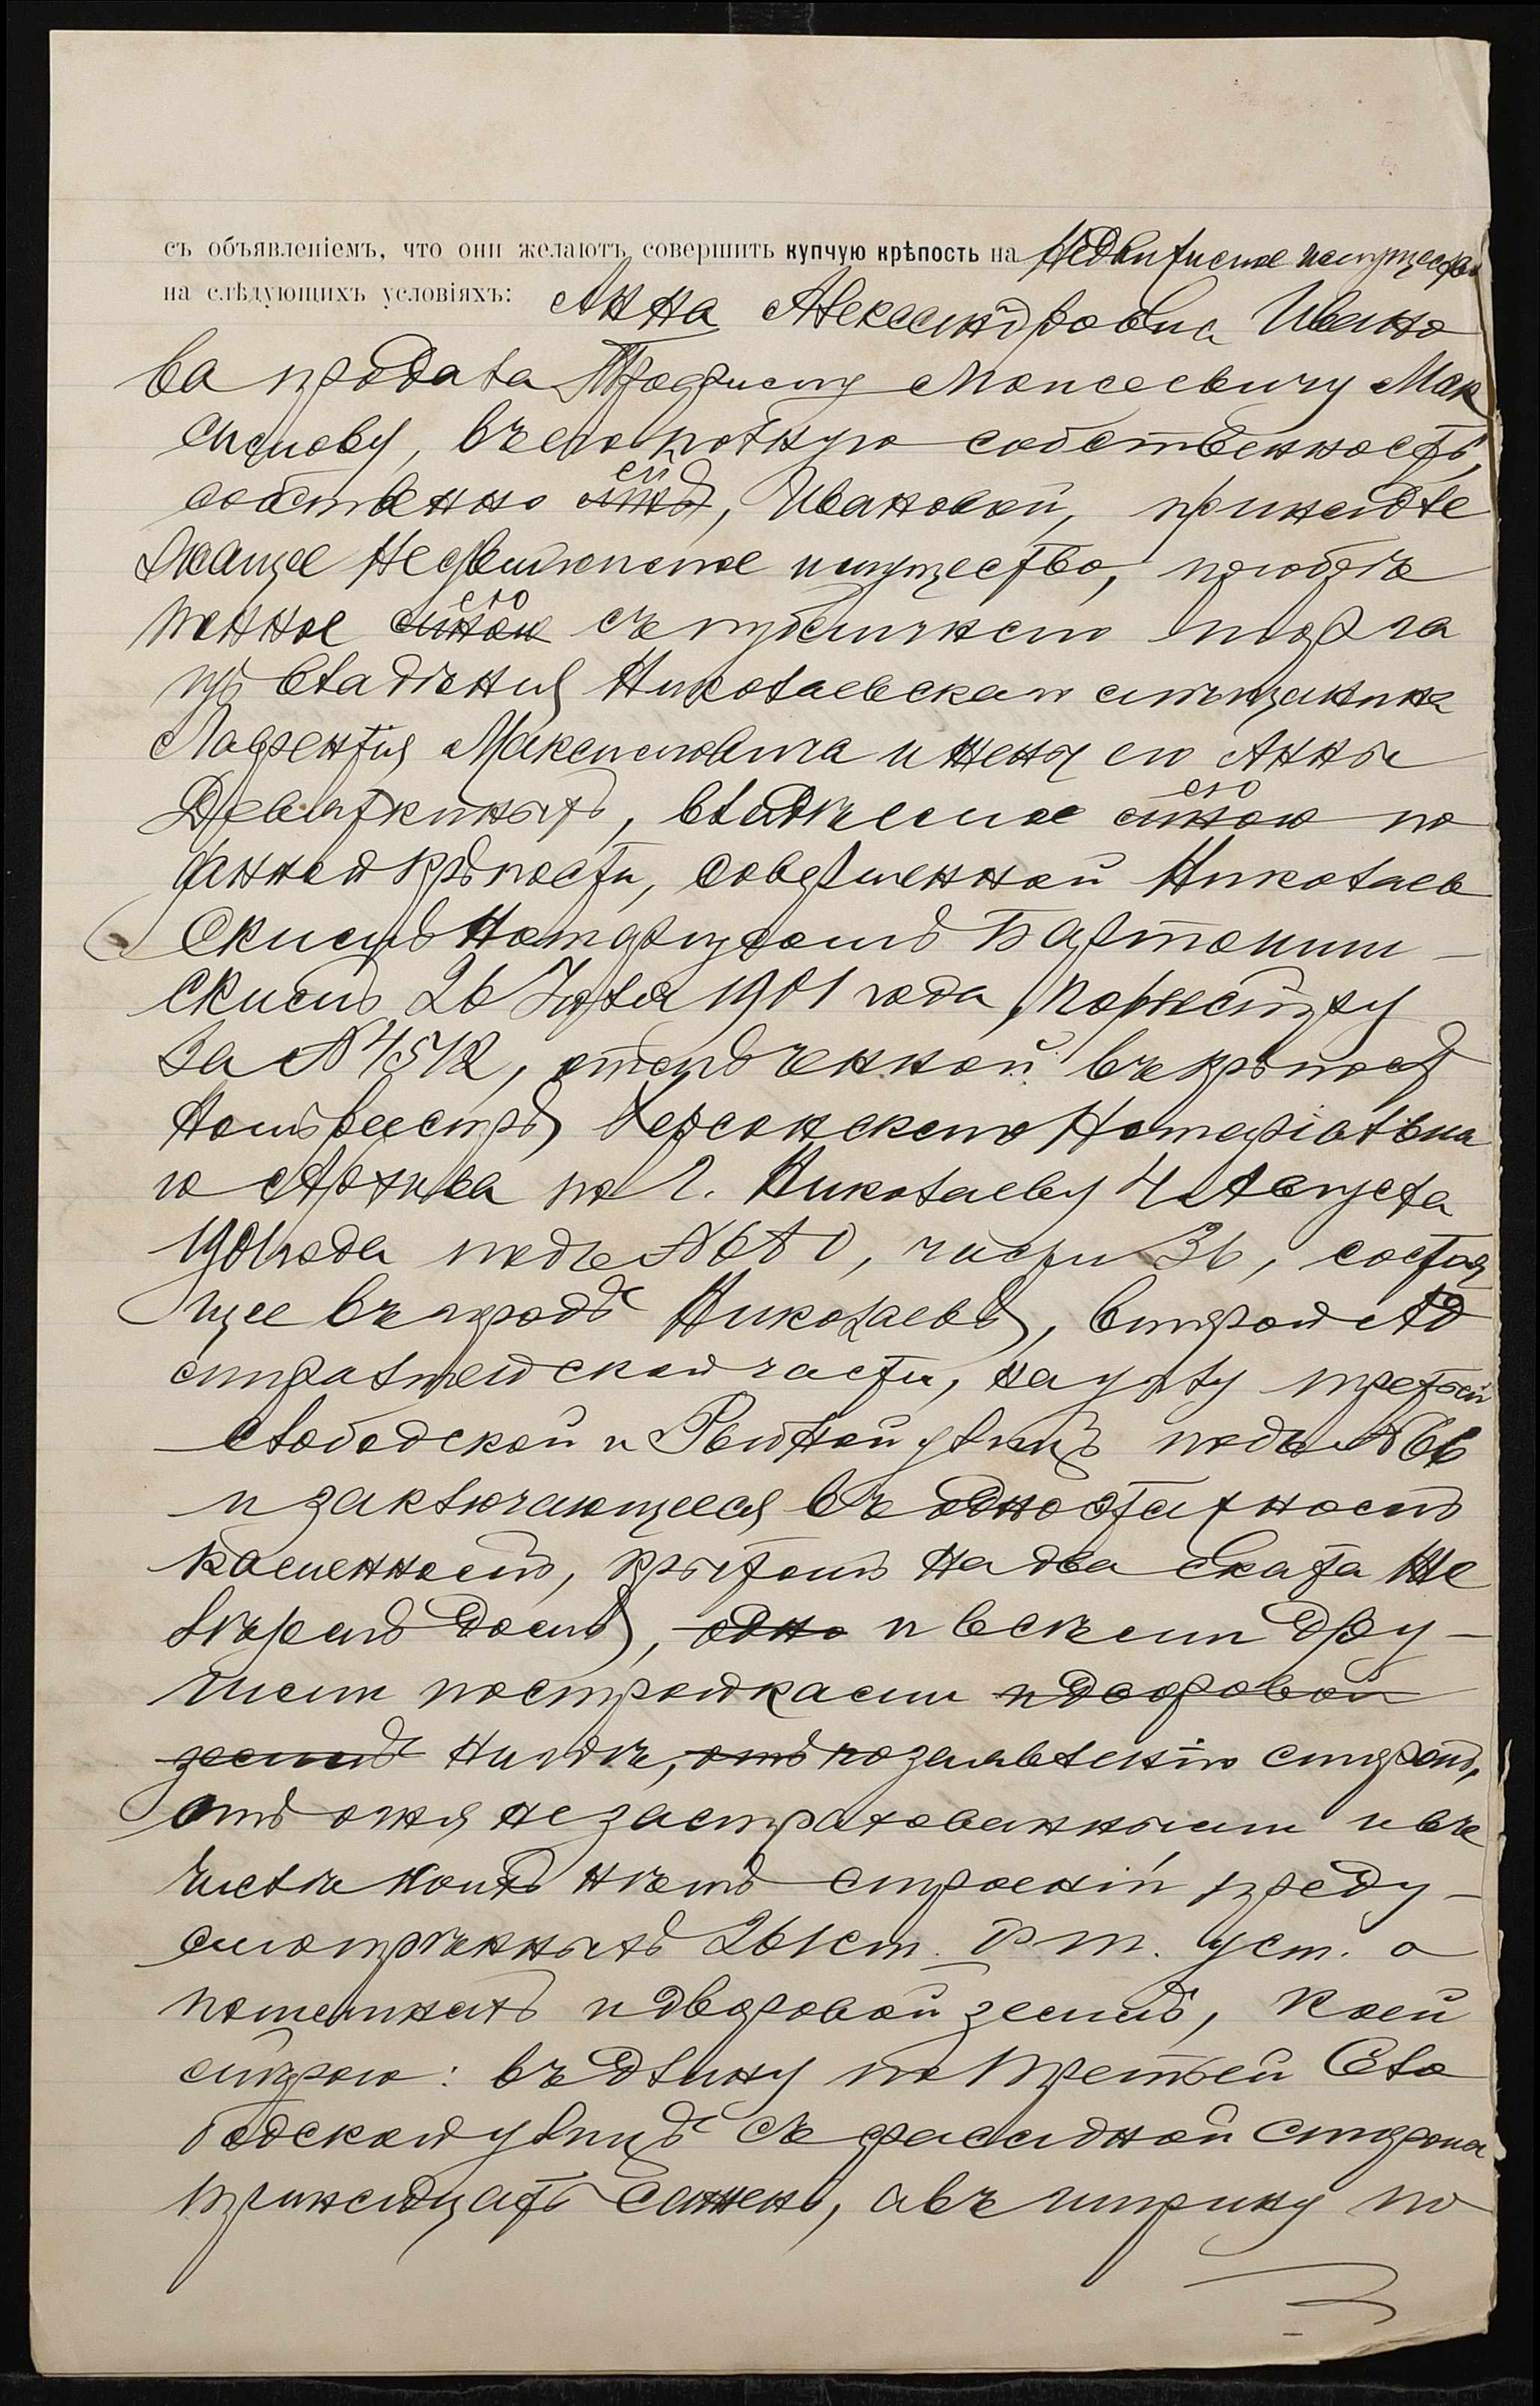 съ объявленіемъ, что они желаютъ совершить купчую крѣпость на недвижимое имущество
на слѣдующихъ условіяхъ: Анна Александровна Ивано
ва продала Трофиму Моисеевичу Мак
симову, въ его полную собственность,
собственно ей мнѣ, Ивановой, принадле
жащее недвижимое имущество, пріобрѣ
тенное ею мною съ публичнаго торга
изъ владѣнія Николаевскаго мѣщанина
Лаврентія Максимовича и жены его Анны
Девяткиныхъ, владѣемое ею мною по
данной крѣпости, совершенной Николаев
скимъ Нотаріусомъ Бартошин-
скимъ 26 Іюля 1901 года, по реестру
за № 4512, отмѣченной въ крѣпост
номъ реестрѣ Херсонскаго Нотаріальна
го Архива по г. Николаеву 4 Августа
1901 года подъ № 680, части 36, состоя
щее въ городѣ Николаевѣ, второй Ад
миралтейской части, на углу третьей
Слободской и Рыбной улицъ подъ № 66
и заключающееся въ одноэтажномъ
каменномъ, крытомъ на два ската че
репицею домѣ, одно и всѣми дру-
гими постройками и дворовой
землѣ нигдѣ, отъ по заявленію сторонъ,
отъ огня не застрахованными и въ
числѣ коихъ нѣтъ строеній преду-
смотрѣнныхъ 261 ст. V т. уст. о
пошлинахъ и дворовой землѣ, коей
мѣрою: въ длину по третьей Сло
бодской улицѣ съ фасадной стороны
тринадцать сажень, а въ ширину по